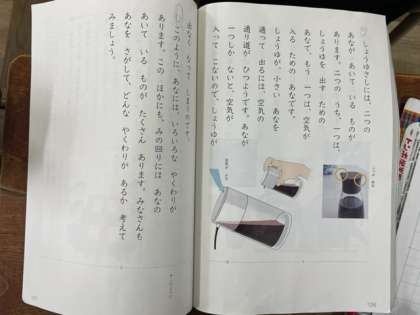 しょうゆさしには、二つの
あなが あいて いる ものが
あります。二つの うち、一つは、
しょうゆを 出す ための
あなで、もう 一つは、空気が
入る ための あなです。
しょうゆが、小さい あなを
通って 出るには、空気の
通り道が ひつようです。あなが
一つしか ないと、空気が
入って こないので、しょうゆが
出なく なって しまうのです。
このように、あなには、いろいろな やくわりが
あります。この ほかにも、みの回りには あなの
あいて いる ものが たくさん あります。みなさんも
あなを さがして、どんな やくわりが あるか 考えて
みましょう。